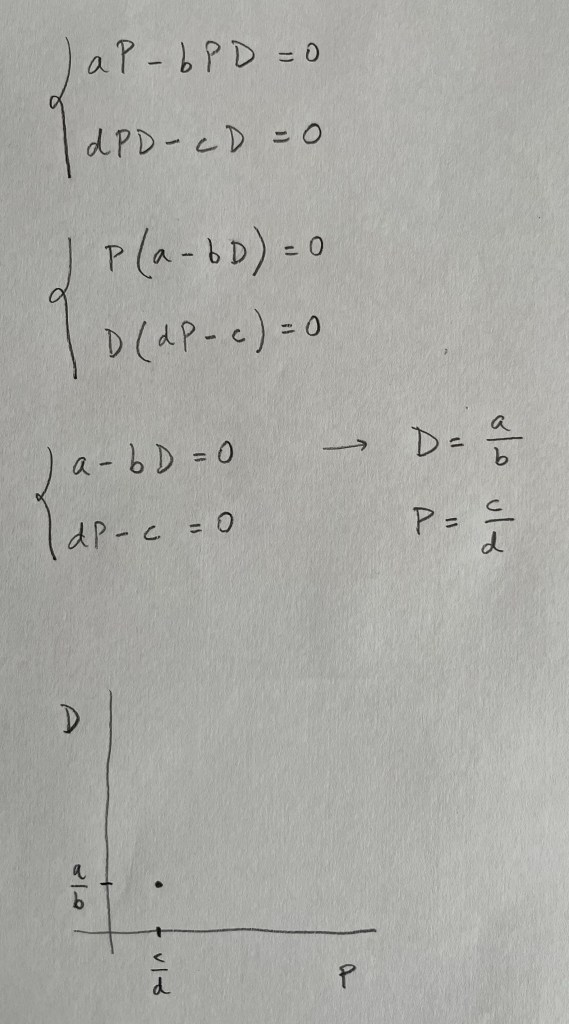 aP - bPD = 0
dPD - cD = 0
P(a - bD) = 0
D(dP - c) = 0
a - bD = 0 → D = a/b
dP - c = 0 P = c/d
D
a/b
c/d
P